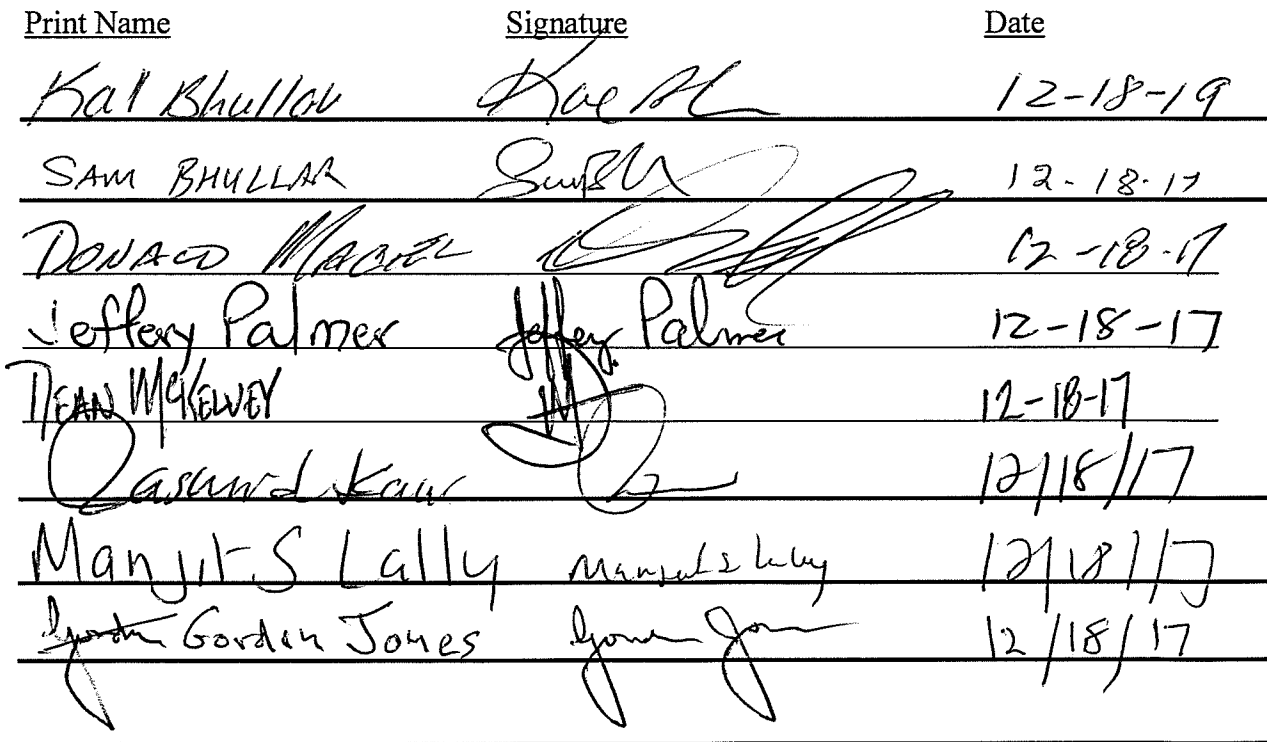 Print Name Signature Date
Kal Bhullar 12-18-19
SAM BHULLAR 12-18-17
DONALD 12-18-17
Jeffery Palmer Jeffery Palmer 12-18-17
DEAN McKELVEY 12-18-17
Kaur 12/18/17
Manjit S Lally Manjit S Lally 12/18/17
Gordon Jones 12/18/17